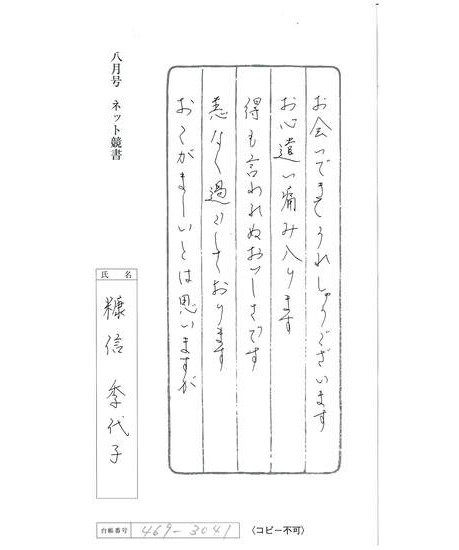 お会いできてうれしゅうございます
お心遣い痛み入ります
得も言われぬおいしさです
恙なく過ごしております
おこがましいとは思いますが
八月号 ネット競書
氏名
糠信 季代子
台帳番号 469-3041
〈コピー不可〉